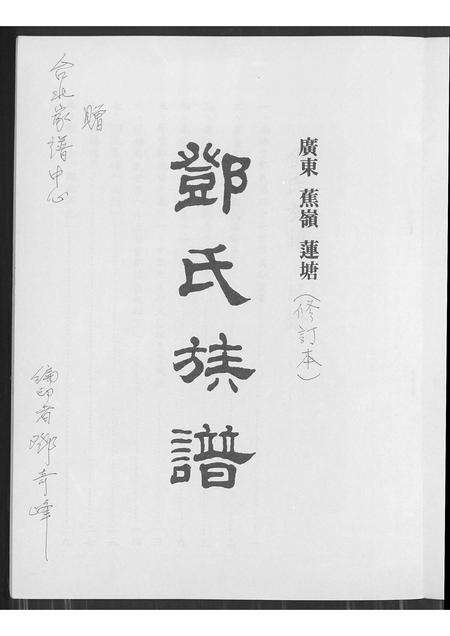 廣東 蕉嶺 蓮塘
(修訂本)
鄧氏族譜
贈
台北家譜中心
編印者鄧奇峰